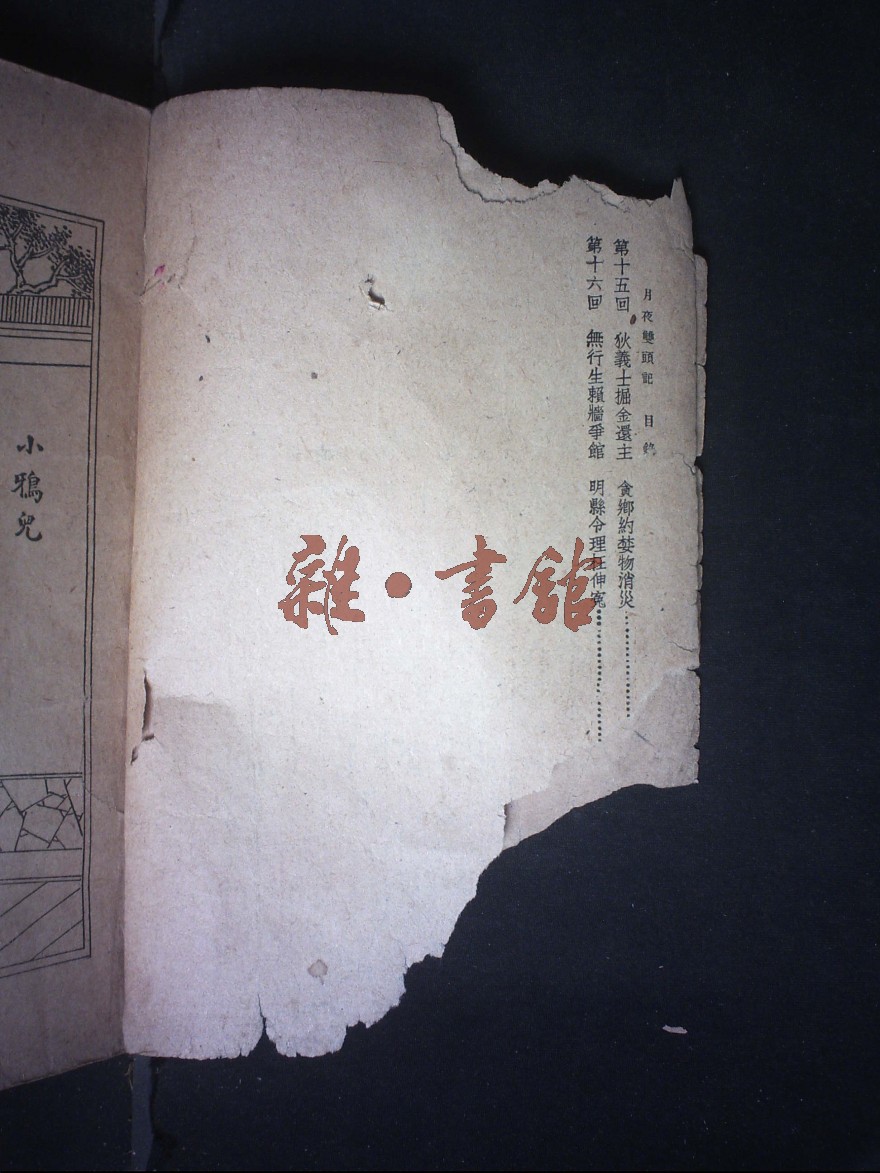 月夜雙頭記 目錄
第十五回 狄義士掘金還主 貪鄉約婪物消災……………
第十六回 無行生賴牆爭館 明縣令理枉伸冤……………
雜·書館
小鴉兒